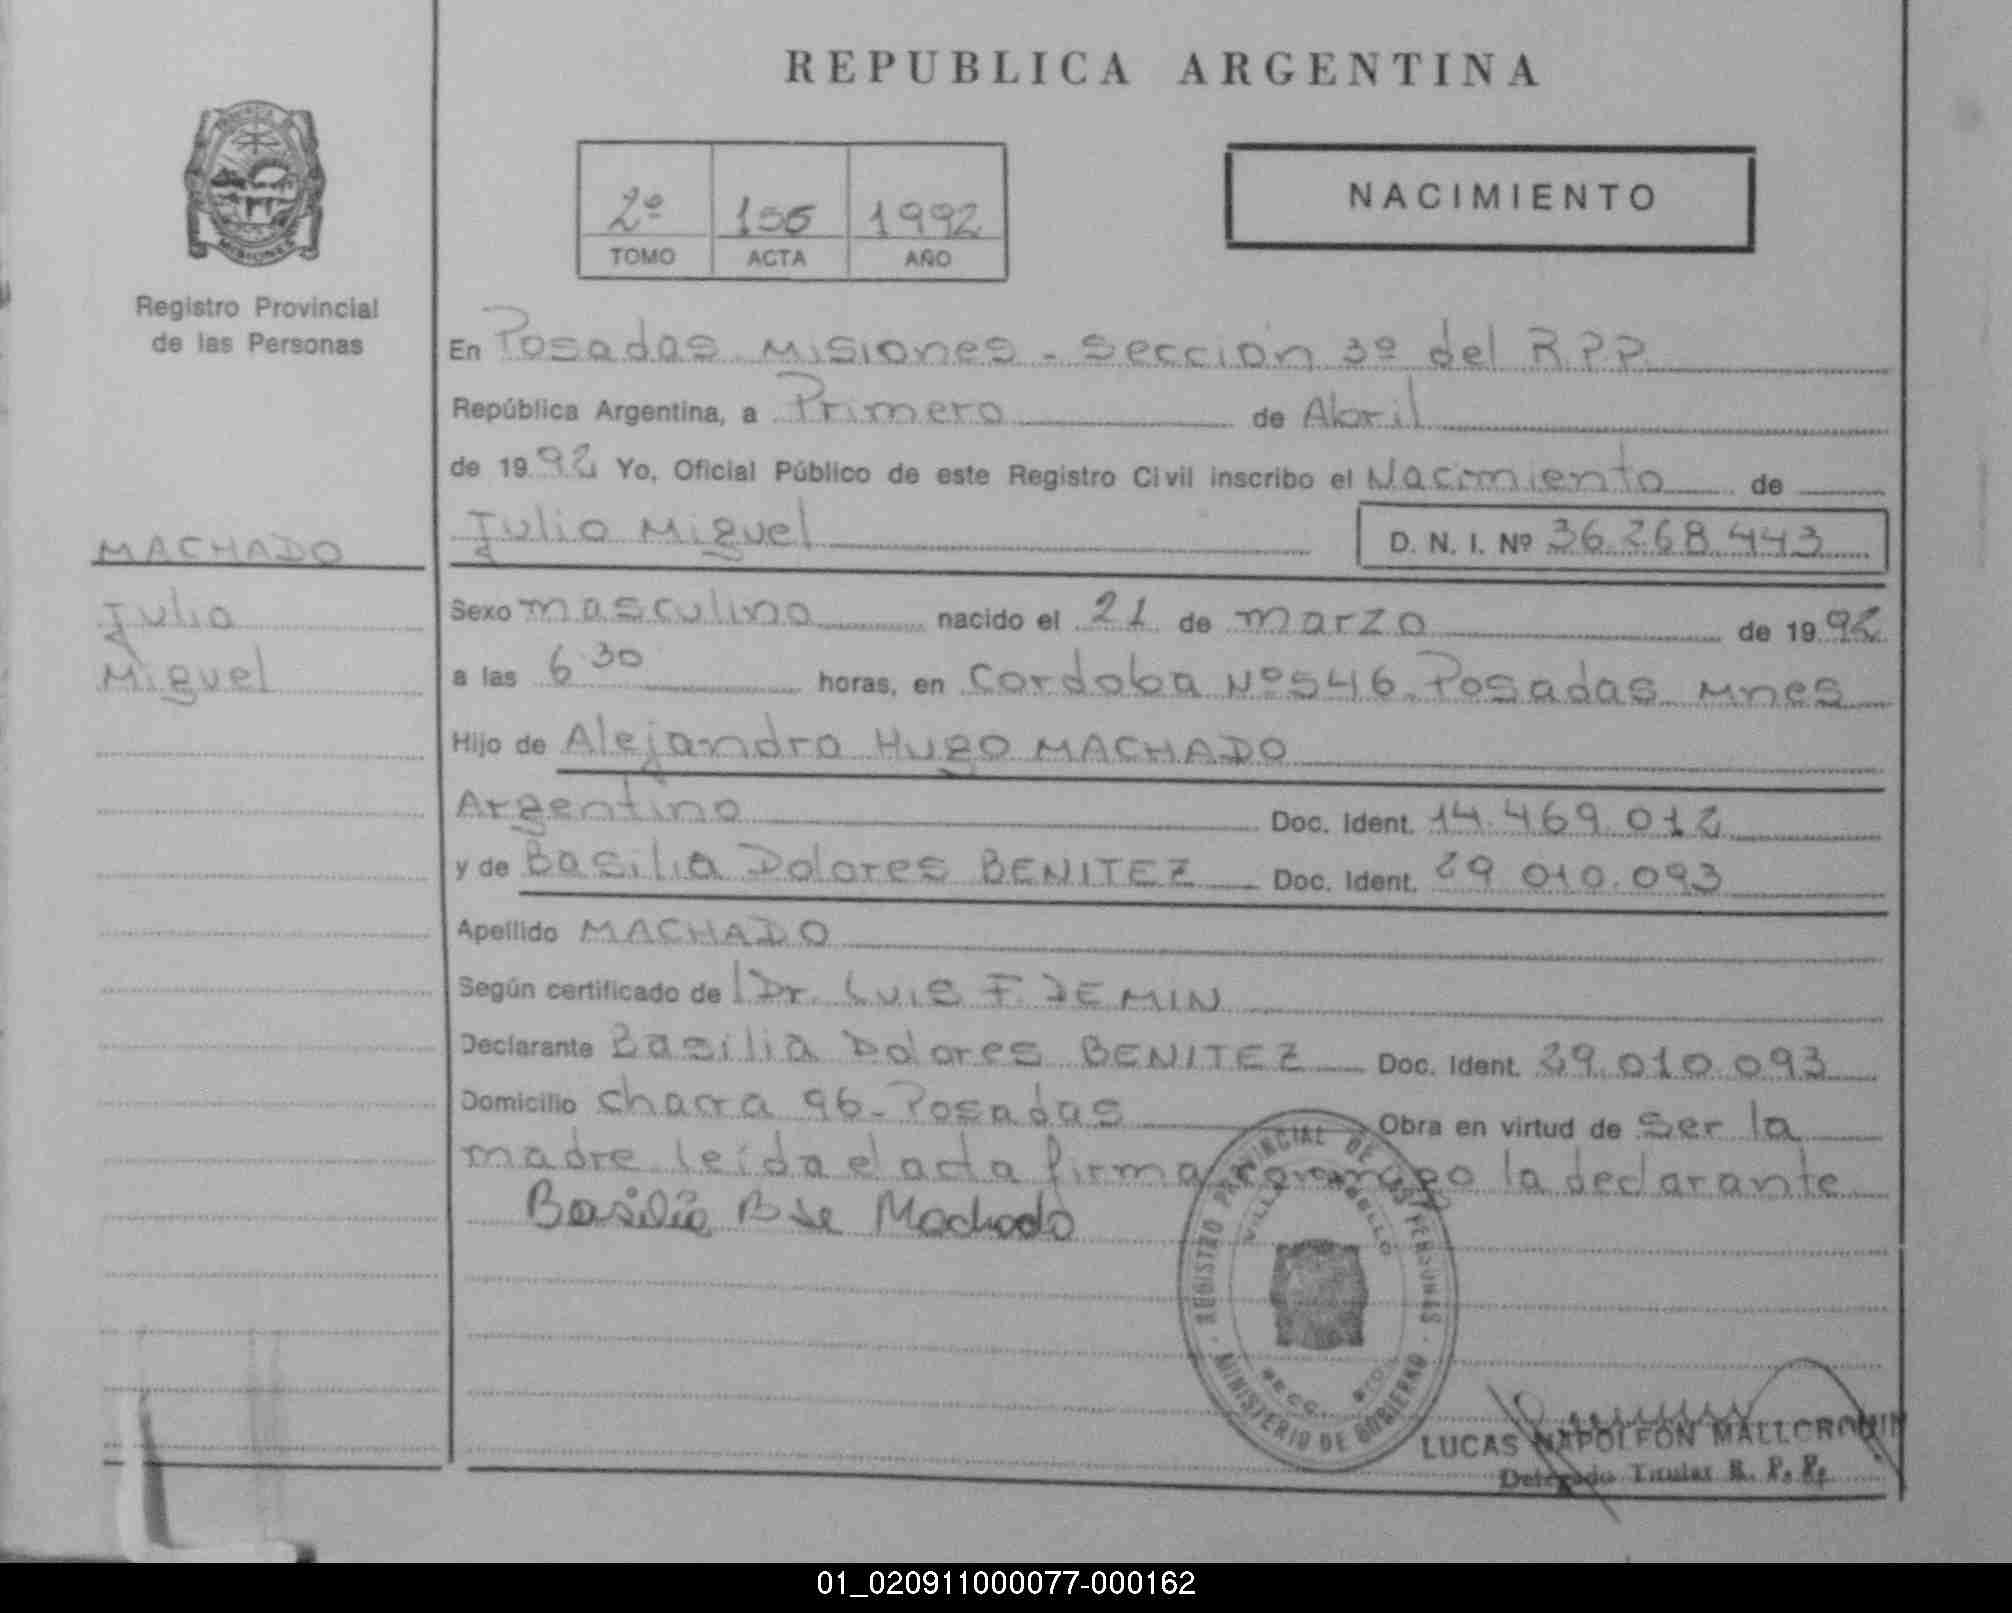 REPUBLICA ARGENTINA
Registro Provincial
de las Personas
2º 156 1992
TOMO ACTA AÑO
NACIMIENTO
En Posadas Misiones - Sección 3º del R.P.P.
República Argentina, a Primero de Abril
de 1992 Yo, Oficial Público de este Registro Civil inscribo el Nacimiento de
Julio Miguel D. N. I. Nº 36.268.443
MACHADO
Julio
Miguel
Sexo masculino nacido el 21 de marzo de 1992
a las 6 30 horas, en Cordoba Nº 546 Posadas Mnes
Hijo de Alejandro Hugo MACHADO
Argentino Doc. Ident. 14.469.012
y de Basilia Dolores BENITEZ Doc. Ident. 29 010.093
Apellido MACHADO
Según certificado de Dr. LUIS F. DEMIN
Declarante Basilia Dolores BENITEZ Doc. Ident. 29.010.093
Domicilio chacra 96 - Posadas Obra en virtud de ser la
madre leída el acta firma conmigo la declarante
Basilia B de Machado
REGISTRO PROVINCIAL DE LAS PERSONAS
MINISTERIO DE GOBIERNO
LUCAS NAPOLEON
Delegado Titular R. P. P.
01_020911000077-000162